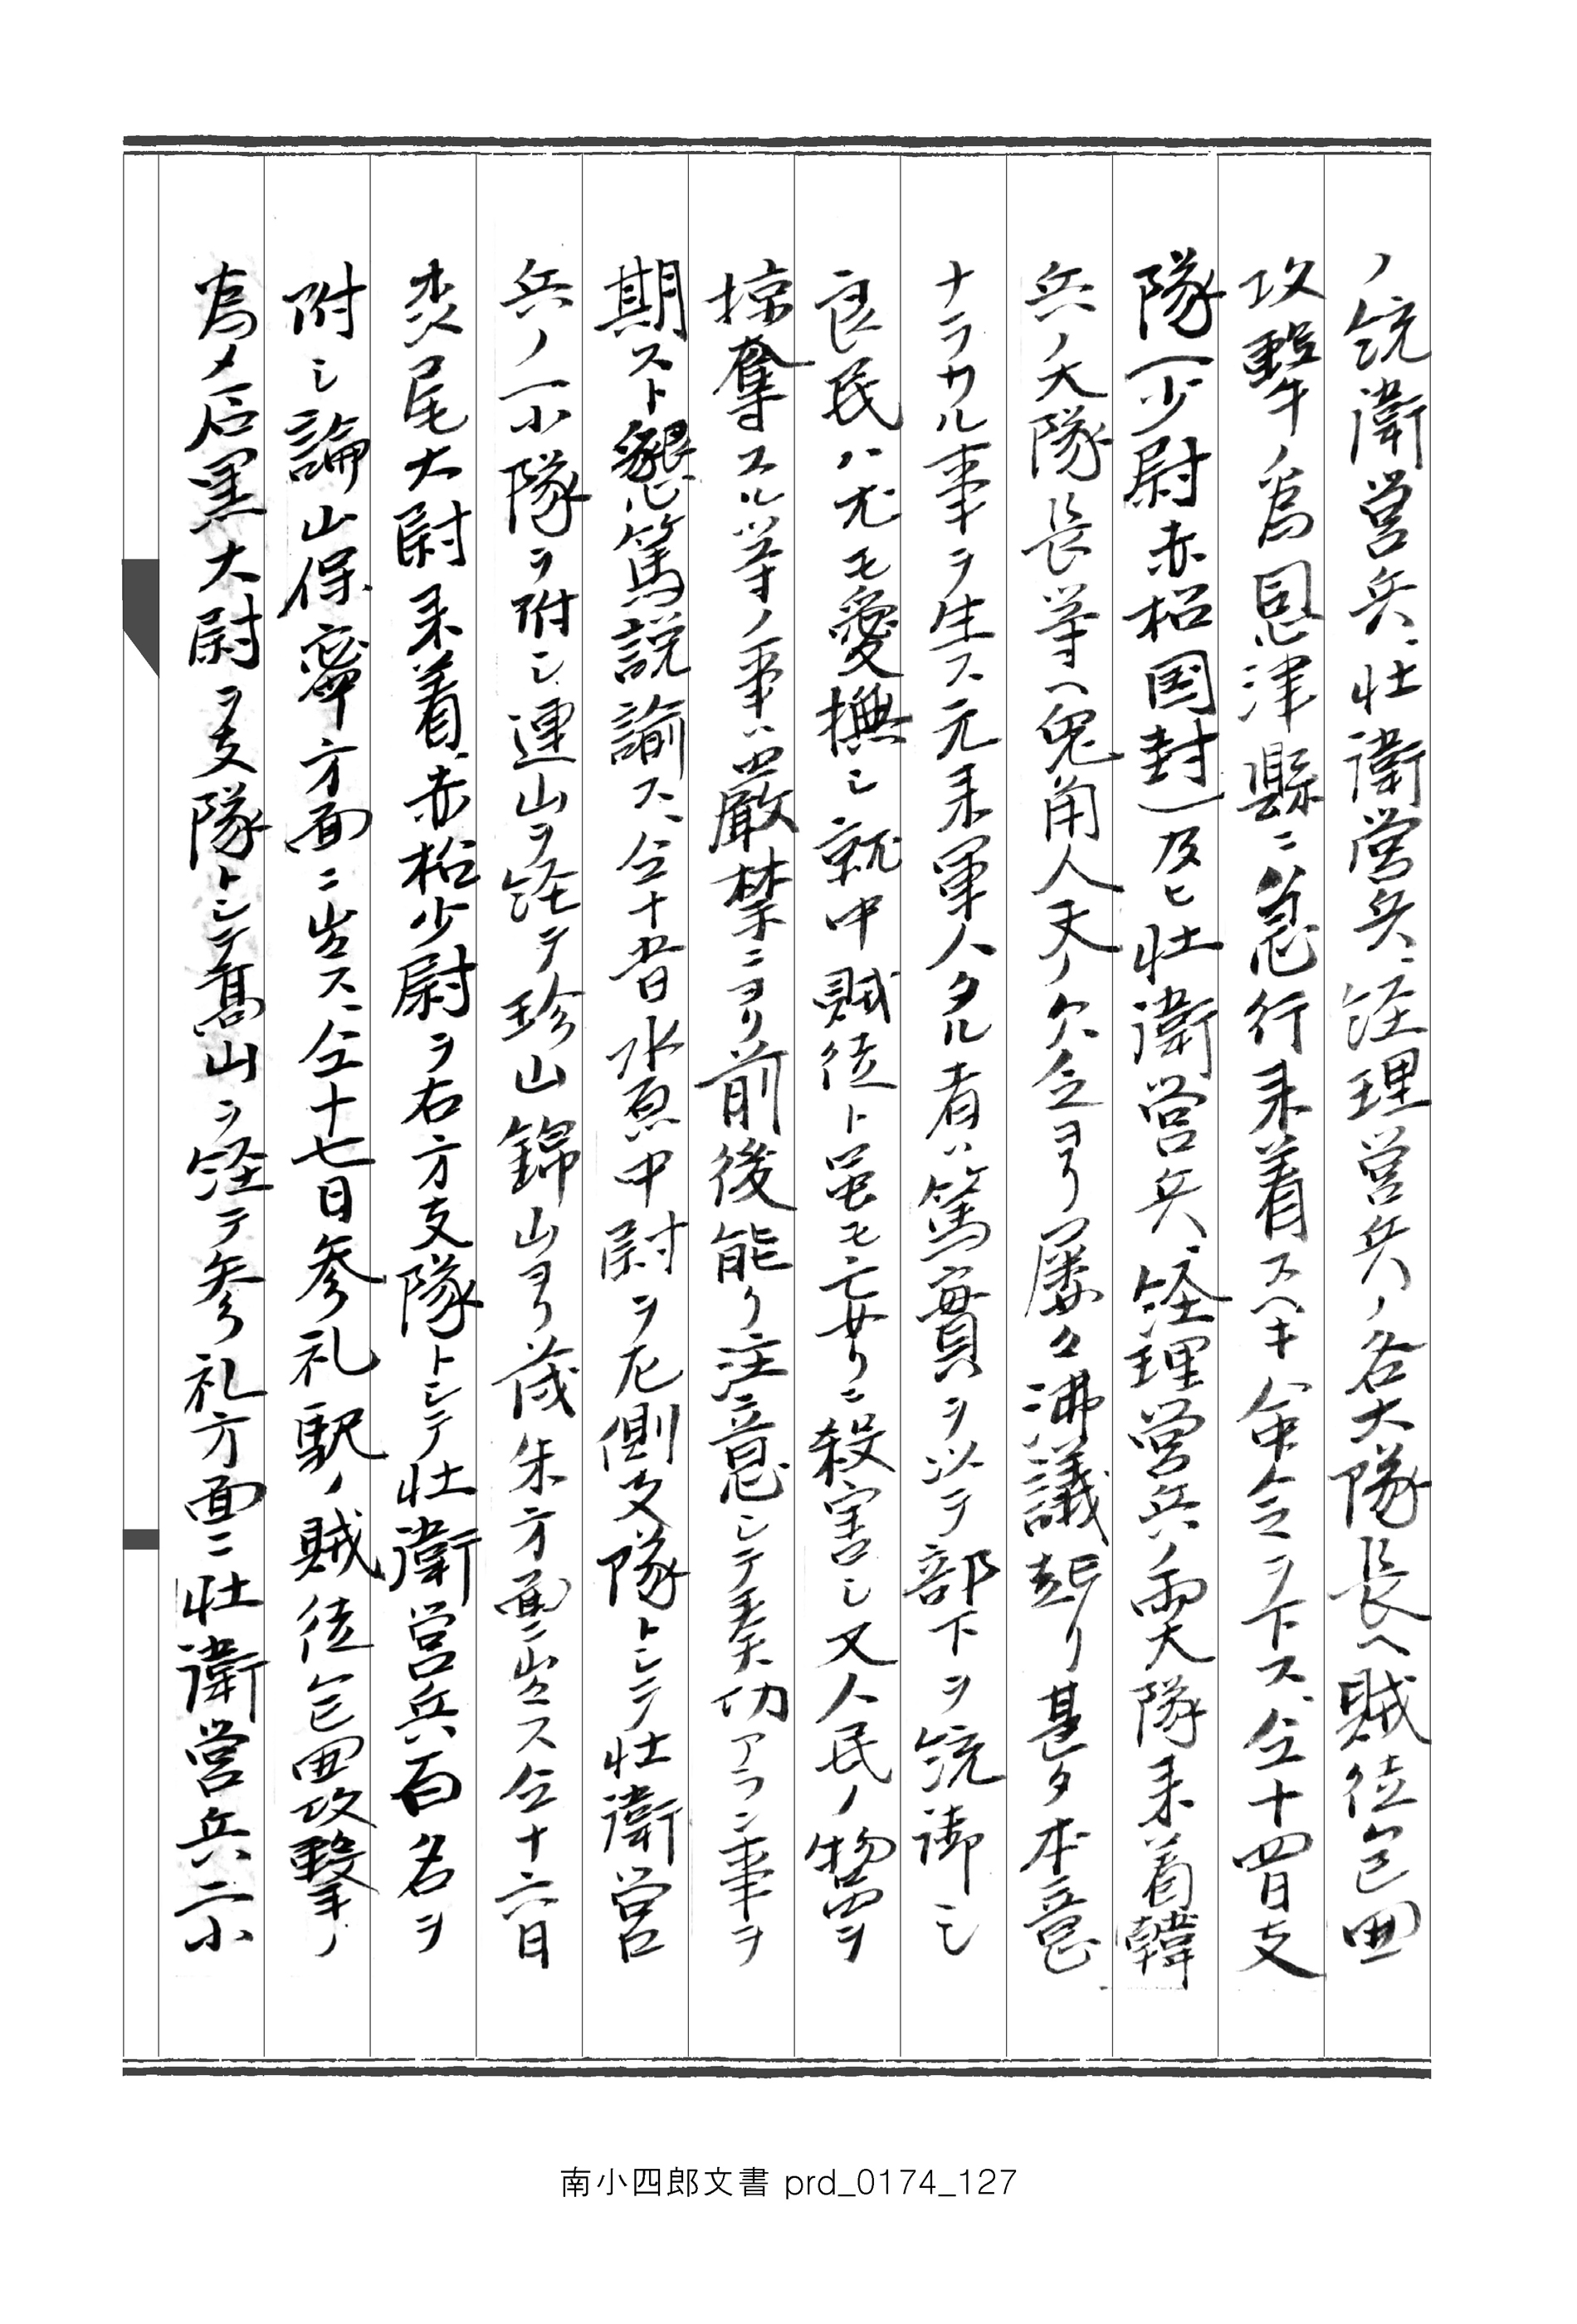 ノ統衛営兵、壮衛営兵、経理営兵ノ各大隊長ヘ賊徒包囲
攻撃ノ為恩津縣ニ急行来着スヘキ命令ヲ下ス、仝十四日支
隊(少尉赤松国封)及ヒ壮衛営兵、経理営兵ノ両大隊来着韓
兵ノ大隊長等ヘ兎角人天ノ欠乏ヨリ屡々沸議起リ甚タ本意
ナラサル事ヲ生ス元来軍人タル者ハ篤実ヲ以テ部下ヲ統御シ
良民ハ尤モ愛撫シ就中賊徒ト虽モ妄リニ殺害シ又人民ノ物品ヲ
掠奪スル等ノ事ハ厳禁ニヨリ前後能ク注意シテ奏功アラン事ヲ
期スト懇篤説諭ス、仝十五日水原中尉ヲ左側支隊トシテ壮衛営
兵ノ一小隊ヲ附シ連山ヲ経テ珍山錦山ヨリ茂朱方面ニ出ス仝十六日
松尾大尉来着、赤松少尉ヲ右方支隊トシテ壮衛営兵百名ヲ
附シ論山保寧方面ニ出ス、仝十七日参礼駅ノ賊徒包囲攻撃ノ
為メ石黒大尉ヲ支隊トシテ髙山ヲ経テ参礼方面ニ壮衛営兵二小
南小四郎文書 prd_0174_127